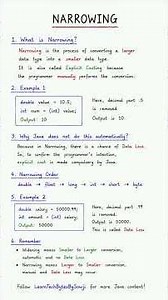 NARROWING
1. What is Narrowing?
Narrowing is the process of converting a larger
data type into a smaller data type.
It is also called Explicit Casting because
the programmer manually performs the conversion.
2. Example 1
double value = 10.5;
int num = (int) value;
Output: 10
Here, decimal part .5
is removed.
Output is 10.
3. Why Java does not do this automatically?
Because in Narrowing, there is a chance of Data Loss.
So, to confirm the programmer's intention,
explicit cast is made compulsory by Java.
4. Narrowing Order
double → float → long → int → short → byte
5. Example 2
double salary = 50000.99;
int amount = (int) salary;
Output: 50000
Here, decimal part .99
is removed.
Output is 50000.
This is called Data Loss.
6. Remember
• Widening means Smaller to Larger conversion,
automatic and no Data Loss.
• Narrowing means Larger to Smaller conversion,
manual and Data Loss may occur.
Follow LearnTechBytesBySowji for more Java content!